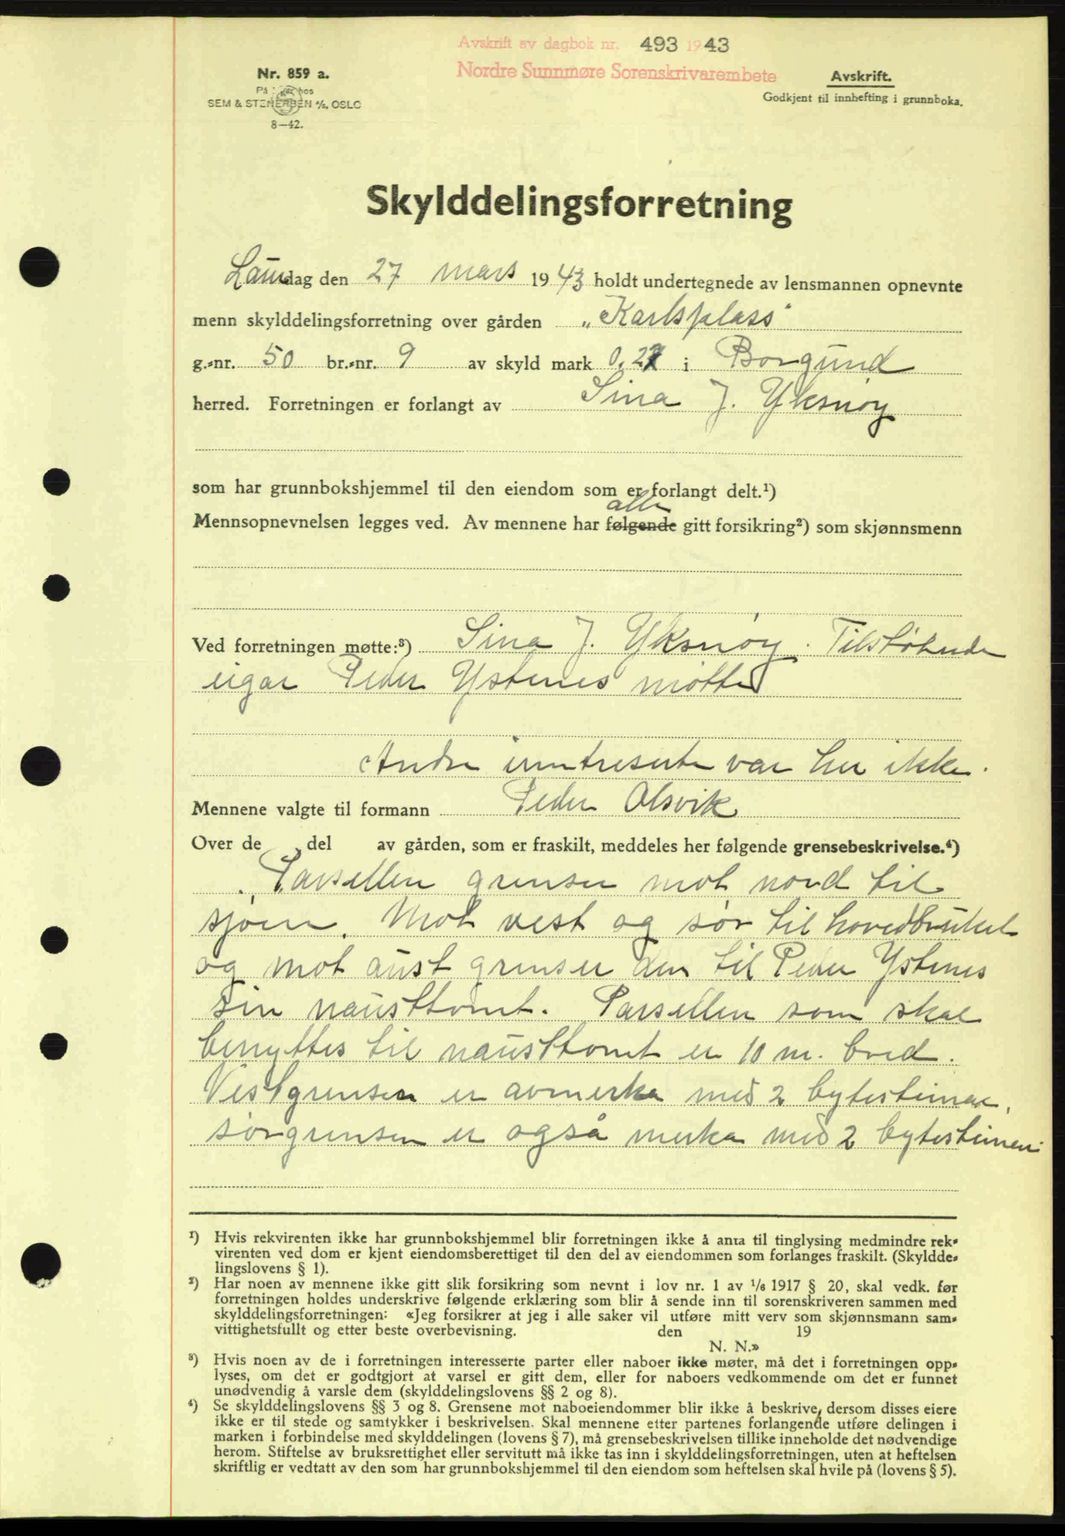 Avskrift av dagbok nr. 493 1943
Nordre Sunnmøre Sorenskrivarembete
Nr. 859 a.
SEM & STENERSEN A/S, OSLO
8—42.
Avskrift.
Godkjent til innhefting i grunnboka.
Skylddelingsforretning
Laurdag den 27 mars 1943 holdt undertegnede av lensmannen opnevnte
menn skylddelingsforretning over gården „Karlsplass“
g.-nr. 50 br.-nr. 9 av skyld mark 0.27 i Borgund
herred. Forretningen er forlangt av Sina J. Yksnøy
som har grunnbokshjemmel til den eiendom som er forlangt delt.¹)
alle
Mennsopnevnelsen legges ved. Av mennene har følgende gitt forsikring²) som skjønnsmenn
Ved forretningen møtte:³) Sina J. Yksnøy. Tilstøtende
eigar Peder Ystenes møtte
Andre inntreserte var her ikke.
Mennene valgte til formann Peder Alsvik
Over de del av gården, som er fraskilt, meddeles her følgende grensebeskrivelse.⁴)
Parsellen grenser mot nord til
sjøen. Mot vest og sør til hovedbruket
og mot aust grenser den til Peder Ystenes
sin nausttomt. Parsellen som skal
benyttes til nausttomt er 10 m. bred.
Vestgrensen er avmerka med 2 bytesteinar,
sørgrensen er også merka med 2 bytesteinen.
¹) Hvis rekvirenten ikke har grunnbokshjemmel blir forretningen ikke å anta til tinglysing medmindre rek-
virenten ved dom er kjent eiendomsberettiget til den del av eiendommen som forlanges fraskilt. (Skyldde-
lingslovens § 1).
²) Har noen av mennene ikke gitt slik forsikring som nevnt i lov nr. 1 av 1/6 1917 § 20, skal vedk. før
forretningen holdes underskrive følgende erklæring som blir å sende inn til sorenskriveren sammen med
skylddelingsforretningen: «Jeg forsikrer at jeg i alle saker vil utføre mitt verv som skjønnsmann sam-
vittighetsfullt og etter beste overbevisning. den 19
N. N.»
³) Hvis noen av de i forretningen interesserte parter eller naboer ikke møter, må det i forretningen opp-
lyses, om det er godtgjort at varsel er gitt dem, eller for naboers vedkommende om det er funnet
unødvendig å varsle dem (skylddelingslovens §§ 2 og 8).
⁴) Se skylddelingslovens §§ 3 og 8. Grensene mot naboeiendommer blir ikke å beskrive, dersom disses eiere
ikke er til stede og samtykker i beskrivelsen. Skal mennene etter partenes forlangende utføre delingen i
marken i forbindelse med skylddelingen (lovens § 7), må grensebeskrivelsen tillike inneholde det nødvendige
herom. Stiftelse av bruksrettighet eller servitutt må ikke tas inn i skylddelingsforretningen, uten at heftelsen
skriftlig er vedtatt av den som har grunnbokshjemmel til den eiendom som heftelsen skal hvile på (lovens § 5).